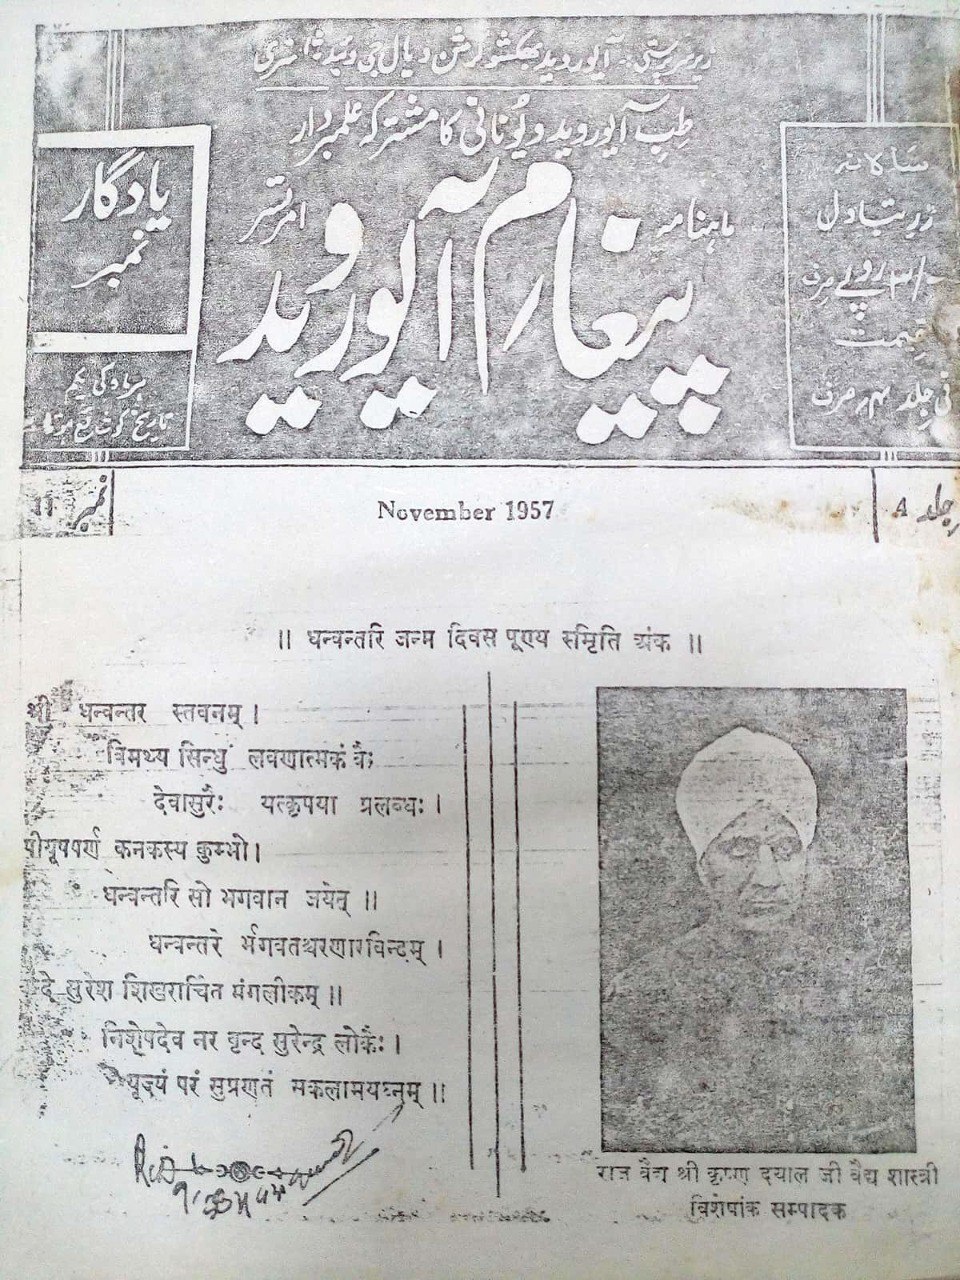 زیر سرپرستی آیوروید بھکشو کرشن دیال جی وئید شاستری
طِب آیوروید و یُونانی کا مشترکہ علمبردار
ماہنامہ
پیغام آیوروید
امرتسر
یادگار
نمبر
ہر ماہ کی یکم
تاریخ کو شائع ہوتا ہے
سالانہ
زرِ تبادل
روپے صرف
قیمت
فی جلد ۴؍ صرف
نمبر 11
November 1957
جلد A
॥ धन्वन्तरि जन्म दिवस पूण्य स्मिृति अंक ॥
श्री धन्वन्तर स्तवनम् ।
विमथ्य सिन्धुं लवणात्मकं वैः
देवासुरैः यत्कृपया प्रलब्धः ।
पीयूषपर्ण कनकस्य कुम्भो ।
धन्वन्तरि सो भगवान जयेन् ॥
धन्वन्तरे र्भगवतश्चरणारविन्दम् ।
सुरेश शिखरार्चित मंगलीकम् ॥
निशेषदेव नर वृन्द सुरेन्द्र लोकैः ।
पूज्यं परं सुप्रणतं मकलामयघ्नुम् ॥
राज वैद्य श्री कृष्ण दयाल जी वैद्य शास्त्री
विशेषांक सम्पादक